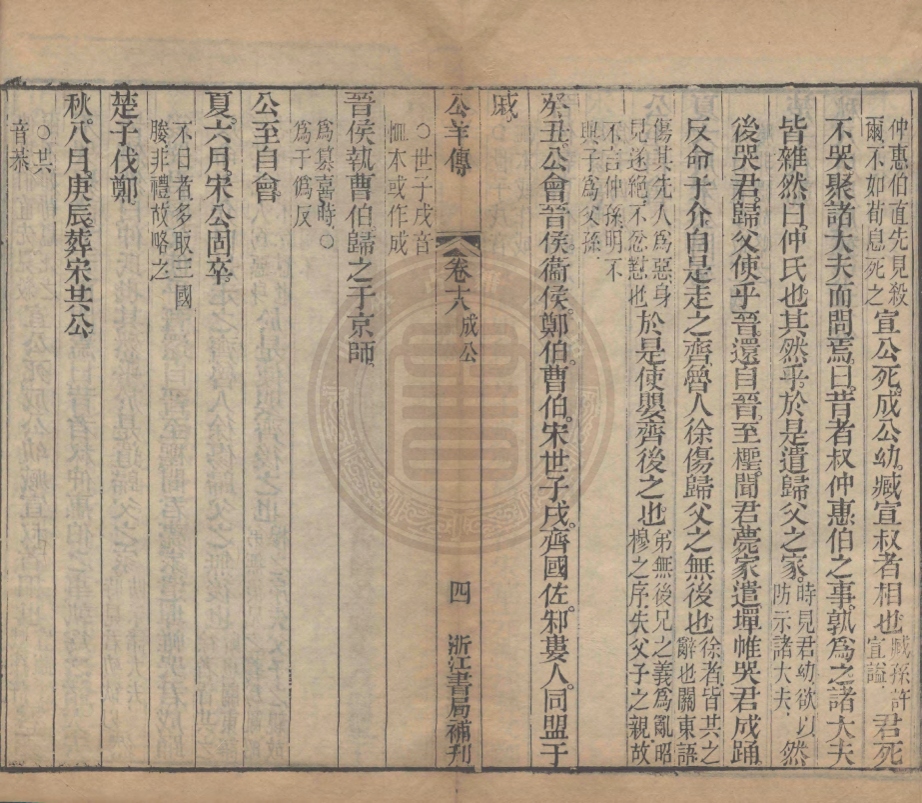 仲惠伯直先見殺爾不如荀息死之宣公死。成公幼。臧宣叔者相也臧孫許宣謚君死
不哭聚諸大夫而問焉。曰。昔者叔仲惠伯之事。孰爲之諸大夫
皆雜然曰。仲氏也。其然乎。於是遣歸父之家。時見君幼欲以防示諸大夫然
後哭君。歸父使乎晉。還自晉。至檉。聞君薨家遣。墠帷哭君成踊
反命于介。自是走之齊。魯人徐傷歸父之無後也徐者皆共之辭也關東語
傷其先人爲惡身見逐絕不忿懟也於是使嬰齊後之也弟無後兄之義爲亂昭穆之序失父子之親故
不言仲孫明不與子爲父孫
癸丑。公會晉侯衞侯。鄭伯。曹伯。宋世子戌。齊國佐。邾婁人。同盟于
戚
公羊傳 卷十八 成公 四 浙江書局補刊
○世子戌音恤本或作成
晉侯執曹伯歸之于京師
爲篡喜時○爲于僞反
公至自會
夏。六月。宋公固卒。
不日者多取三國媵非禮故略之
楚子伐鄭
秋。八月。庚辰。葬宋共公
○共音恭